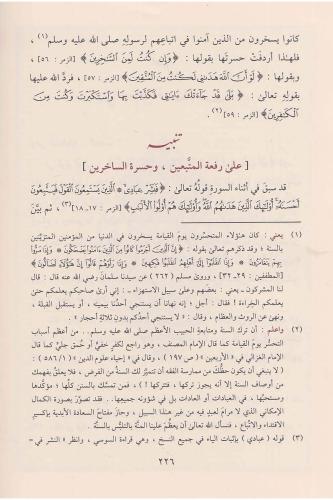 كانوا يسخرون من الذين آمنوا في اتباعهم لرسوله صلى الله عليه وسلم(١) ،
فلهذا أردفَتْ حسرتها بقولها : ﴿ وَإِن كُنتُ لَمِنَ ٱلسَّٰخِرِينَ ﴾ [الزمر : ٥٦] ،
وبقولها : ﴿ لَوْ أَنَّ ٱللَّهَ هَدَىٰنِي لَكُنتُ مِنَ ٱلْمُتَّقِينَ ﴾ [الزمر : ٥٧] ، فردَّ الله عليها
بقوله تعالى : ﴿ بَلَىٰ قَدْ جَآءَتْكَ ءَايَٰتِي فَكَذَّبْتَ بِهَا وَٱسْتَكْبَرْتَ وَكُنتَ مِنَ
ٱلْكَٰفِرِينَ ﴾ [الزمر : ٥٩](٢) .
تنبيه
[ على رفعة المتَّبعين ، وحسرة الساخرين ]
قد سبق في أثناء السورة قولُهُ تعالى : ﴿ فَبَشِّرْ عِبَادِ ۝ ٱلَّذِينَ يَسْتَمِعُونَ ٱلْقَوْلَ فَيَتَّبِعُونَ
أَحْسَنَهُۥٓ أُو۟لَٰٓئِكَ ٱلَّذِينَ هَدَىٰهُمُ ٱللَّهُ وَأُو۟لَٰٓئِكَ هُمْ أُو۟لُوا۟ ٱلْأَلْبَٰبِ ﴾ [الزمر : ١٧ـ١٨](٣) ، ثم بيَّن
(١) يعني : كان هؤلاء المتحسِّرون يوم القيامة يسخرون في الدنيا من المؤمنين المتزيِّنين
بالسنة ؛ وقد ذكرهم تعالى بقوله : ﴿ إِنَّ ٱلَّذِينَ أَجْرَمُوا۟ كَانُوا۟ مِنَ ٱلَّذِينَ ءَامَنُوا۟ يَضْحَكُونَ ۝ وَإِذَا مَرُّوا۟
بِهِمْ يَتَغَامَزُونَ ۝ وَإِذَا ٱنقَلَبُوٓا۟ إِلَىٰٓ أَهْلِهِمُ ٱنقَلَبُوا۟ فَكِهِينَ ۝ وَإِذَا رَأَوْهُمْ قَالُوٓا۟ إِنَّ هَٰٓؤُلَآءِ لَضَآلُّونَ ﴾
[المطففين : ٢٩ـ٣٢] ، وروى مسلم ( ٢٦٢ ) عن سيدنا سلمان رضي الله عنه قال : قال
لنا المشركون ـ يعني : بعضهم وعلى سبيل الاستهزاء ـ : إني أرى صاحبكم يعلمكم حتى
يعلمكم الخِراءة ! فقال : أجل ؛ إنه نهانا أن يستنجي أحدُنا بيمينه ، أو يستقبل القبلة ،
ونهى عن الروث والعظام ، وقال : « لا يستنجي أحدكم بدون ثلاثة أحجار » .
(٢) واعلم : أن ترك السنة ومتابعة الحبيب الأعظم صلى الله عليه وسلم .. من أعظم أسباب
التحسُّر يوم القيامة كما قال الإمام المصنف ، وهو راجع لكفرٍ خفيٍّ أو حُمق جلي كما قال
الإمام الغزالي في « الأربعين » ( ص١٩٧ ) ، وقال في « إحياء علوم الدين » ( ١/ ٥٨٦ ) :
( لا ينبغي أن يكون حظُّك من ممارسة الفقه أن تتميز لك السنة عن الفرض ، فلا يعلق بفهمك
من أوصاف السنة إلا أنه يجوز تركها ، فتتركها ! ) ، فمن تمسَّك بالسنن كلِّها ؛ مؤكدها
ومستحبها ، في العبادات أو العادات بل في شؤونه جميعها .. فقد تصوَّر بصورة الكمال
الإمكاني الذي لا مرامَ لعبدٍ فيه من غير هذا السبيل ، وحاز مفتاح السعادة الأبدية بإكسير
الاقتداء والاتِّباع ، فنسأل الله تعالى أن يعظِّم علينا المنَّة بالتلبُّس بالسنَّة .
(٣) قوله ( عبادي ) بإثبات الياء في جميع النسخ ، وهي قراءة السوسي ، وانظر « النشر في ـ
٢٢٦